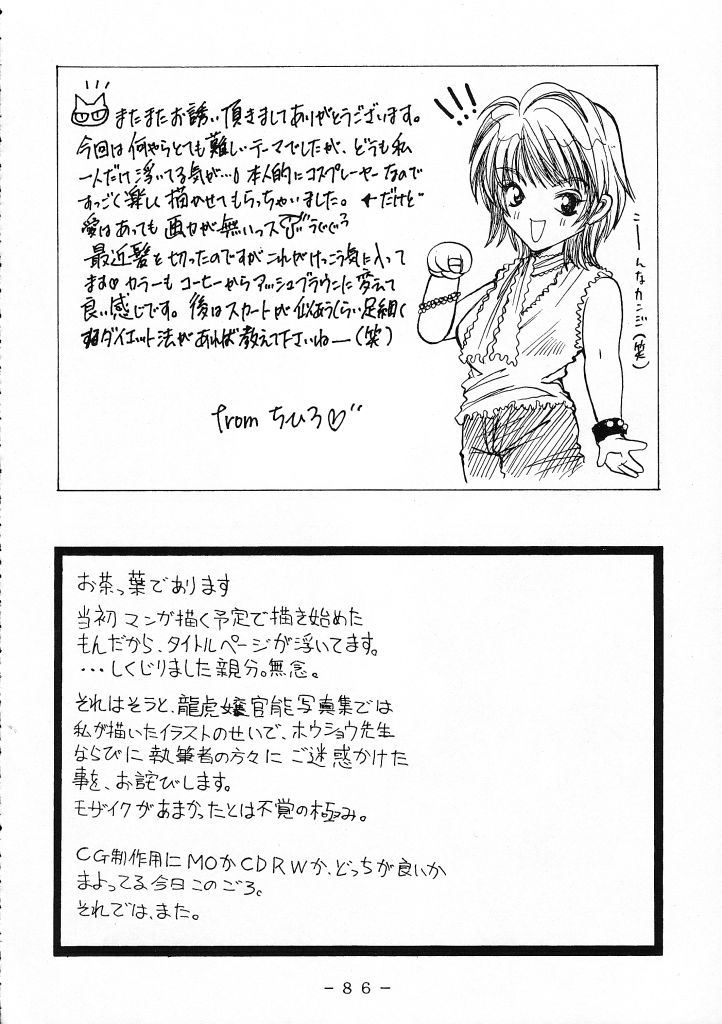 またまたお誘い頂きましてありがとうございます。
今回は何やらとても難しいテーマでしたが、どうも私
一人だけ浮いてる気が…! 本人的にコスプレーヤーなので
すっごく楽しく描かせてもらっちゃいました。←だけど
愛はあっても画力が無いっス
最近髪を切ったのですがこれがけっこう気に入って
ます♡カラーもコーヒーからアッシュブラウンに変えて
良い感じです。後はスカートが似あうくらい足細く
するダイエット法があれば教えて下さいねー(笑)
from ちひろ♡
!!!
こーんなカンジ(笑)
お茶っ葉であります
当初マンガ描く予定で描き始めた
もんだから、タイトルページが浮いてます。
・・・しくじりました親分。無念。
それはそうと、龍虎嬢官能写真集では
私が描いたイラストのせいで、ホウショウ先生
ならびに執筆者の方々にご迷惑かけた
事を、お詫びします。
モザイクがあまかったとは不覚の極み。
CG制作用にMOかCDRWか、どっちが良いか
まよってる今日このごろ。
それでは、また。
-86-